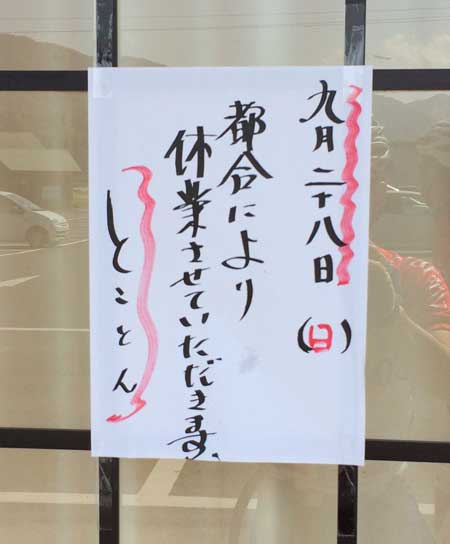 九月二十八日(日)
都合により
休業させていただきます、
とことん